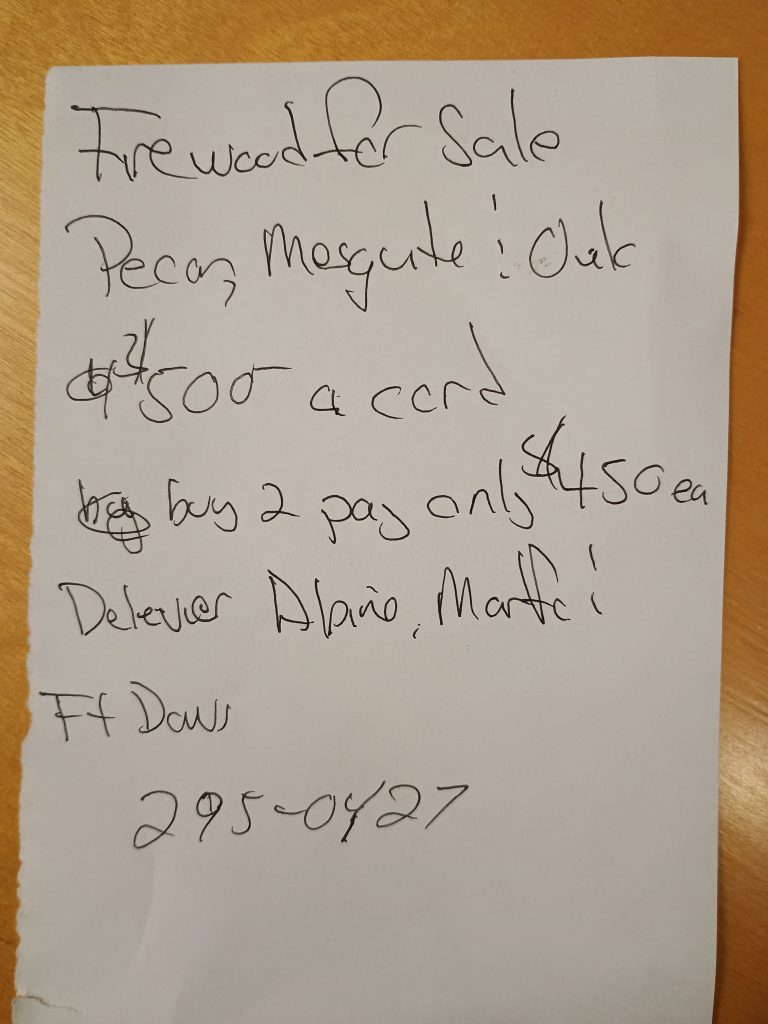 Firewood for Sale
Pecan, Mesquite & Oak
$500 a cord
buy 2 pay only $450 ea
Delever Alpine, Marfa &
Ft Davis
295-0427